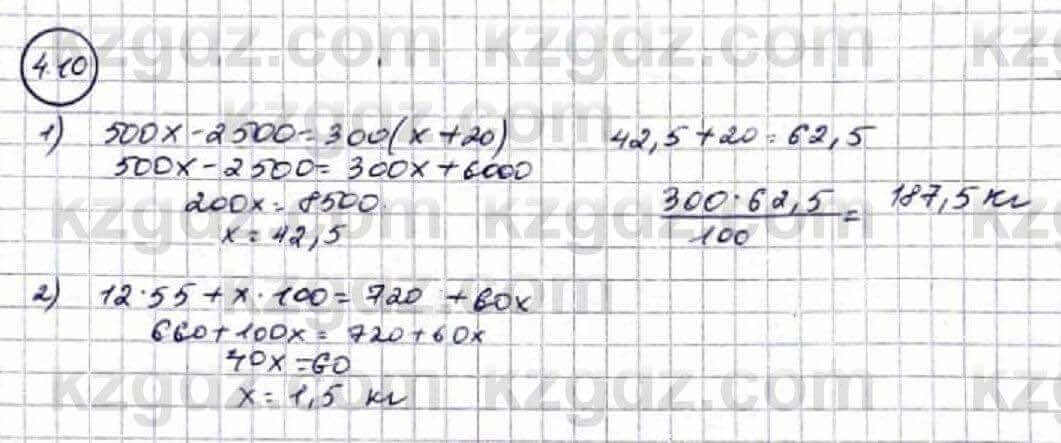 4.10
1) 500x - 2500 = 300(x + 20)
42,5 + 20 = 62,5
500x - 2500 = 300x + 6000
200x = 8500
300 · 62,5 / 100 = 187,5 кг
x = 42,5
2) 12 · 55 + x · 100 = 720 + 60x
660 + 100x = 720 + 60x
40x = 60
x = 1,5 кг
kzgdz.com kzgdz.com kz
kzgdz.com
kzgdz.com kzgdz.com kz
kzgdz.com
kzgdz.com kzgdz.com kz